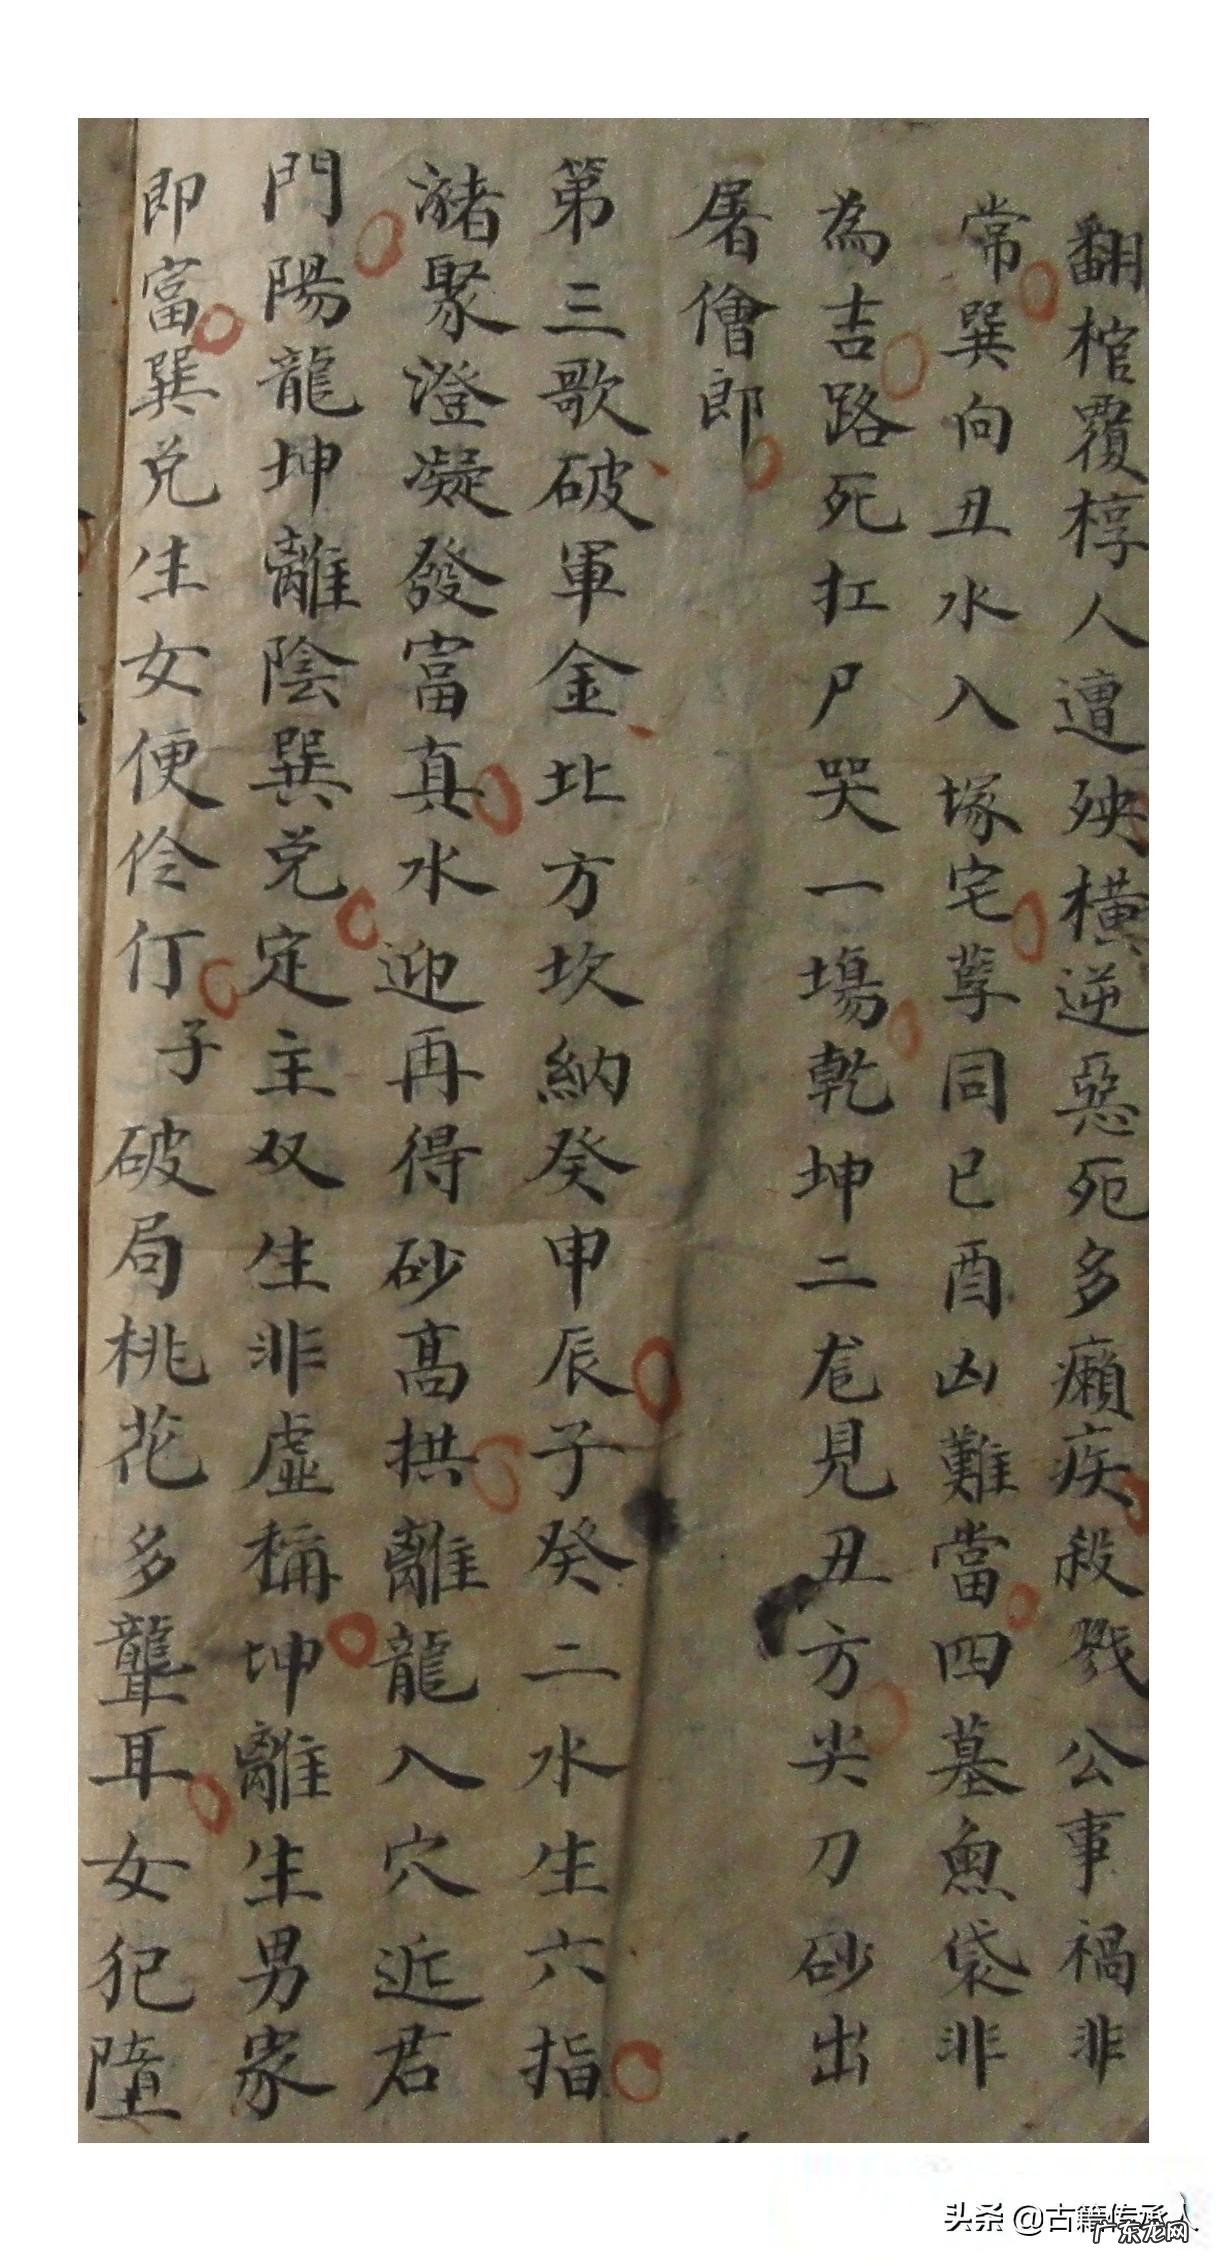 翻棺覆椁人遭殃橫逆惡死多癩疾殺戮公事禍非
常巽向丑水入塚宅孽同巳酉凶難當四墓魚袋非
為吉路死扛尸哭一塲乾坤二尨見丑方尖刀砂出
屠儈郎
第三歌破軍金北方坎納癸申辰子癸二水生六指
潴聚澄凝發富真水迎再得砂髙拱離龍入穴近君
門陽龍坤離陰巽兑定主双生非虛稱坤離生男家
即富巽兑生女便伶仃子破局桃花多聾耳女犯墮
头条 @古籍传承人
广东龙网